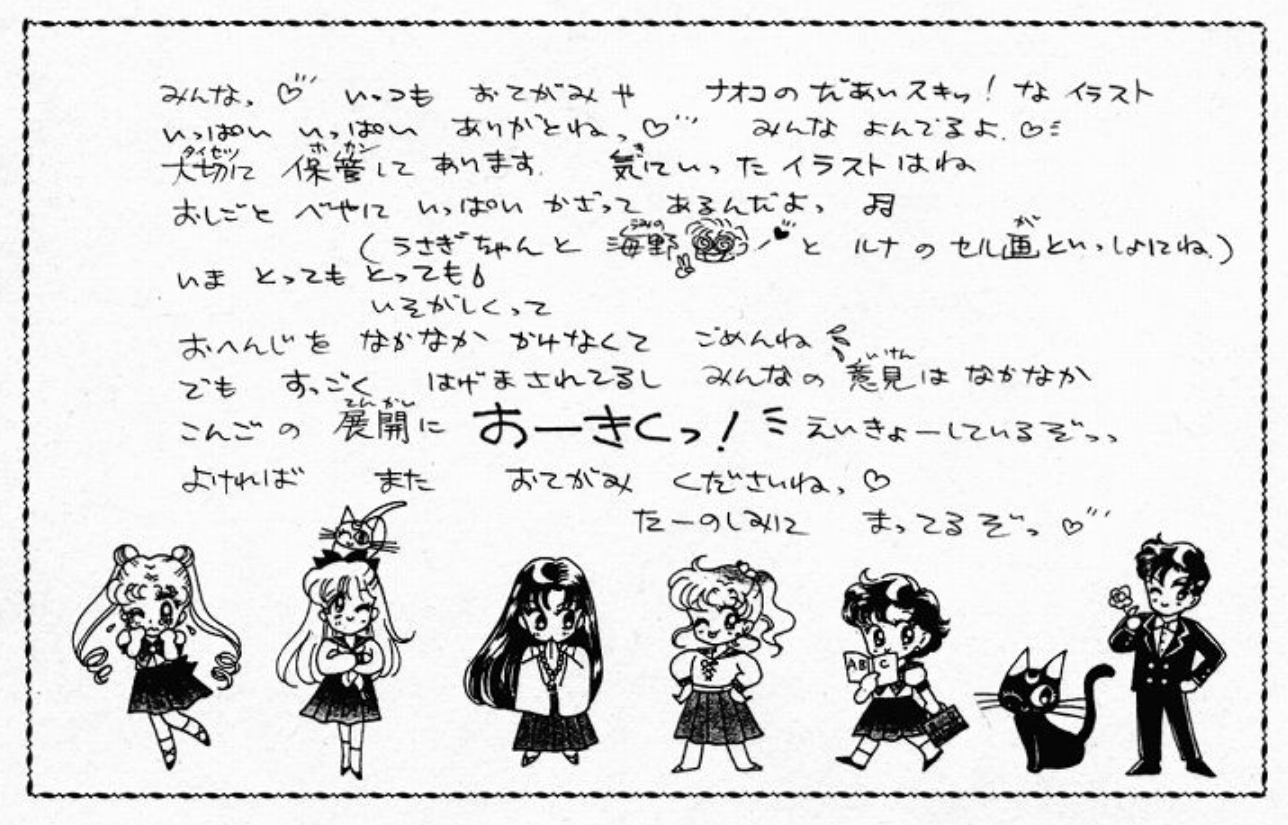 みんな、♡ いっつも おてがみや ナオコの だあいスキッ！な イラスト
いっぱい いっぱい ありがとね、♡ みんな よんでるよ ♡
大切に 保管して あります。 気にいった イラストはね
おしごとべやに いっぱい かざって あるんだよっ ♫
(うさぎちゃんと 海野 ♥と ルナの セル画といっしょにね)
いま とっても とっても
いそがしくって
おへんじを なかなか かけなくて ごめんね
でも すっごく はげまされてるし みんなの 意見は なかなか
こんごの 展開に おーきくっ！ えいきょーしているぞっっ
よければ また おてがみ くださいね、♡
たーのしみに まってるぞっ ♡
AB C